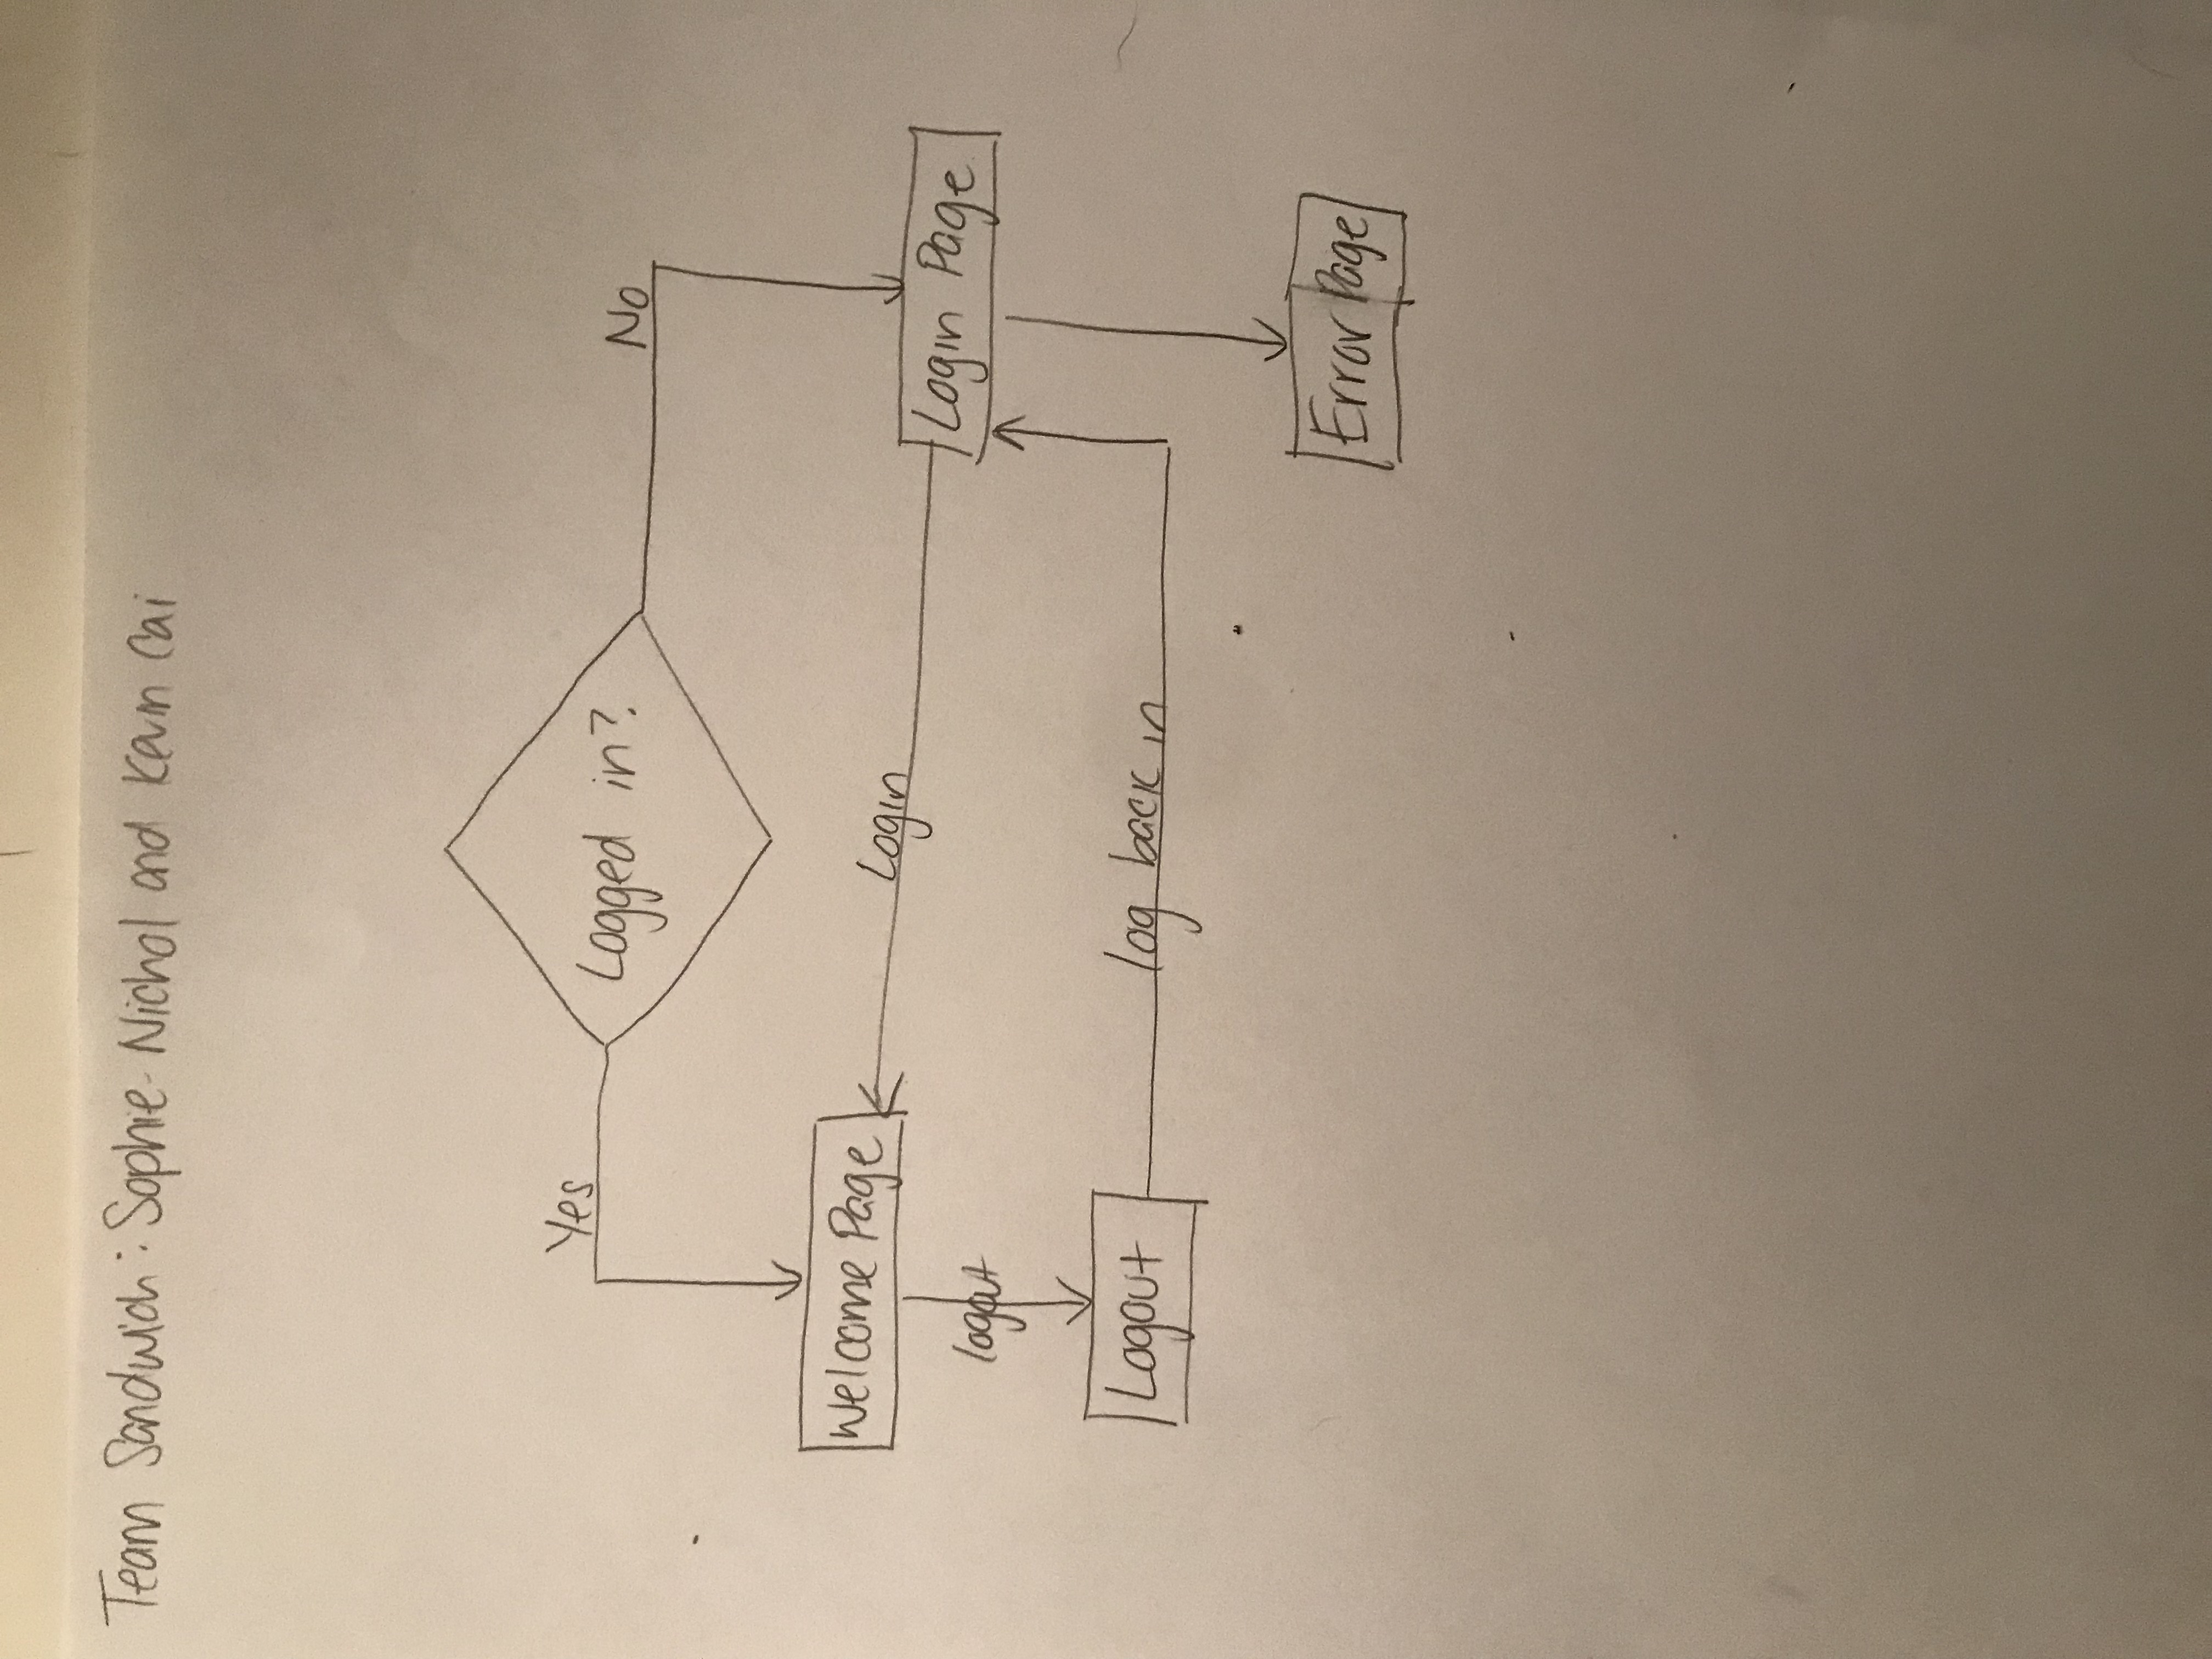 Team Sandwich: Sophie Nichol and Kevin Cai
Logged in?
Yes
No
Welcome Page
Login
Login Page
logout
Logout
log back in
Error Page